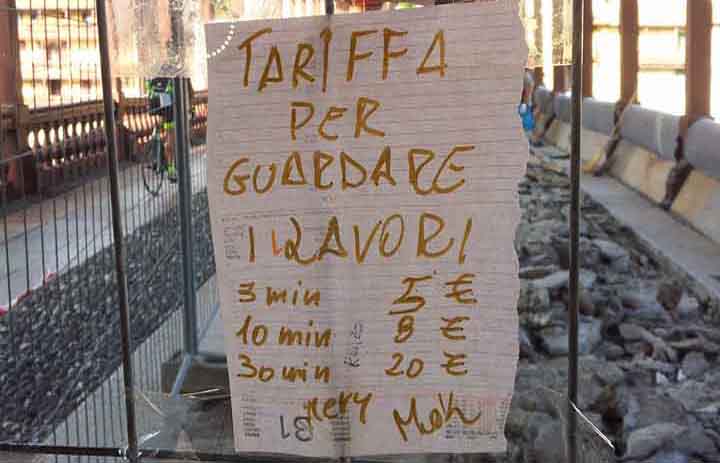 TARIFFA
PER
GUARDARE
I LAVORI
3 min 5 €
10 min 8 €
30 min 20 €